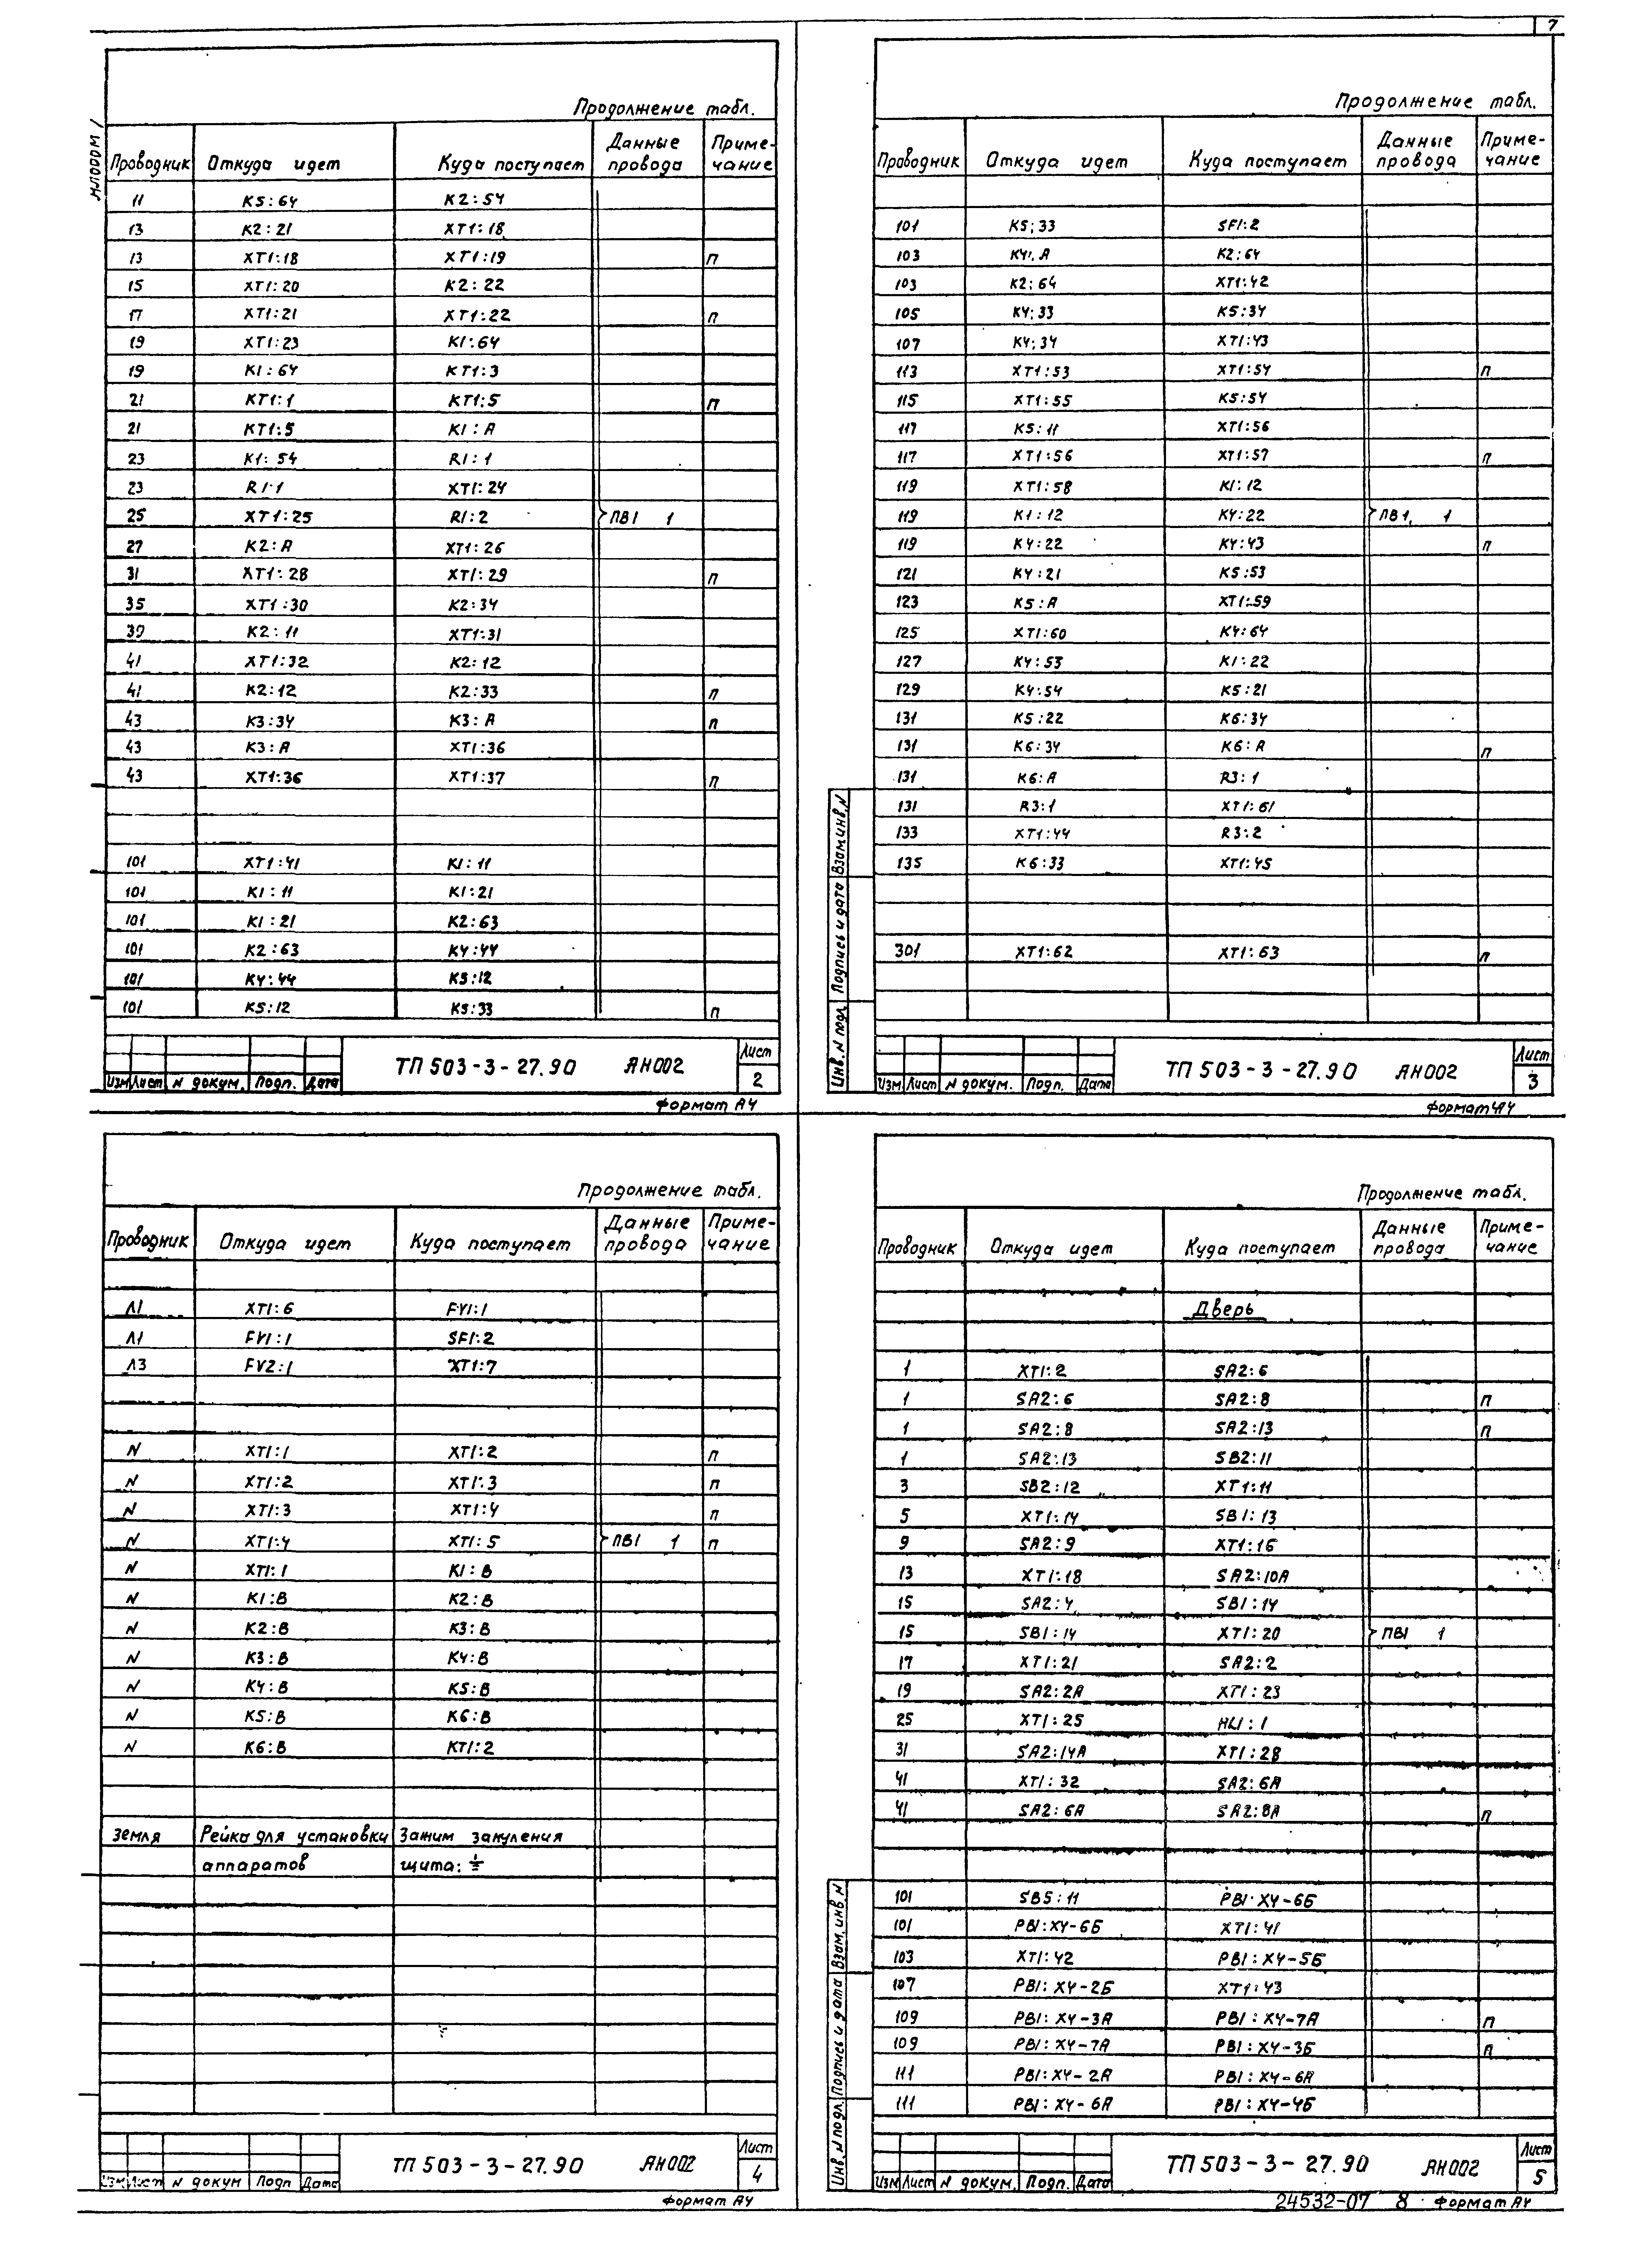 7
Продолжение табл.
Проводник Откуда идет Куда поступает Данные провода Приме-чание
11 K5:64 K2:54
13 K2:21 XT1:18
13 XT1:18 XT1:19 п
15 XT1:20 K2:22
17 XT1:21 XT1:22 п
19 XT1:23 K1:64
19 K1:64 KT1:3
21 KT1:1 KT1:5 п
21 KT1:5 K1:A
23 K1:54 R1:1
23 R1:1 XT1:24
25 XT1:25 R1:2 ПВ1 1
27 K2:A XT1:26
31 XT1:28 XT1:29 п
35 XT1:30 K2:34
39 K2:11 XT1:31
41 XT1:32 K2:12
41 K2:12 K2:33 п
43 K3:34 K3:A п
43 K3:A XT1:36
43 XT1:36 XT1:37 п
101 XT1:41 K1:11
101 K1:11 K1:21
101 K1:21 K2:63
101 K2:63 K4:44
101 K4:44 K5:12
101 K5:12 K5:33 п
Изм Лист N докум. Подп. Дата
ТП 503-3-27.90 АН002
Лист 2
Формат А4
Продолжение табл.
Проводник Откуда идет Куда поступает Данные провода Приме-чание
101 K5:33 SF1:2
103 K4:A K2:64
103 K2:64 XT1:42
105 K4:33 K5:34
107 K4:34 XT1:43
113 XT1:53 XT1:54 п
115 XT1:55 K5:54
117 K5:11 XT1:56
117 XT1:56 XT1:57 п
119 XT1:58 K1:12
119 K1:12 K4:22 ПВ1 1
119 K4:22 K4:43 п
121 K4:21 K5:53
123 K5:A XT1:59
125 XT1:60 K4:64
127 K4:53 K1:22
129 K4:54 K5:21
131 K5:22 K6:34
131 K6:34 K6:A п
131 K6:A R3:1
131 R3:1 XT1:61
133 XT1:44 R3:2
135 K6:33 XT1:45
301 XT1:62 XT1:63 п
Инв. N подл. Подпись и дата Взам инв. N
Изм Лист N докум. Подп. Дата
ТП 503-3-27.90 АН002
Лист 3
Формат А4
Продолжение табл.
Проводник Откуда идет Куда поступает Данные провода Приме-чание
Л1 XT1:6 FV1:1
Л1 FV1:1 SF1:2
Л3 FV2:1 XT1:7
N XT1:1 XT1:2 п
N XT1:2 XT1:3 п
N XT1:3 XT1:4 п
N XT1:4 XT1:5 ПВ1 1 п
N XT1:1 K1:B
N K1:B K2:B
N K2:B K3:B
N K3:B K4:B
N K4:B K5:B
N K5:B K6:B
N K6:B KT1:2
Земля Рейка для установки Зажим зануления
аппаратов щита: ⏚
Изм Лист N докум Подп Дата
ТП 503-3-27.90 АН002
Лист 4
Формат А4
Продолжение табл.
Проводник Откуда идет Куда поступает Данные провода Приме-чание
Дверь
1 XT1:2 SA2:6
1 SA2:6 SA2:8 п
1 SA2:8 SA2:13 п
1 SA2:13 SB2:11
3 SB2:12 XT1:11
5 XT1:14 SB1:13
9 SA2:9 XT1:16
13 XT1:18 SA2:10A
15 SA2:4 SB1:14
15 SB1:14 XT1:20 ПВ1 1
17 XT1:21 SA2:2
19 SA2:2A XT1:23
25 XT1:25 HL1:1
31 SA2:14A XT1:28
41 XT1:32 SA2:6A
41 SA2:6A SA2:8A п
101 SB5:11 PB1:X4-6Б
101 PB1:X4-6Б XT1:41
103 XT1:42 PB1:X4-5Б
107 PB1:X4-2Б XT1:43
109 PB1:X4-3A PB1:X4-7A п
109 PB1:X4-7A PB1:X4-3Б п
111 PB1:X4-2A PB1:X4-6A
111 PB1:X4-6A PB1:X4-4Б
Инв. N подл. Подпись и дата Взам. инв. N
Изм Лист N докум. Подп. Дата
ТП 503-3-27.90 АН002
Лист 5
24532-07 8 Формат А4